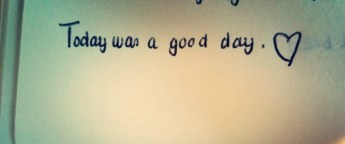 Today was a good day. ♡